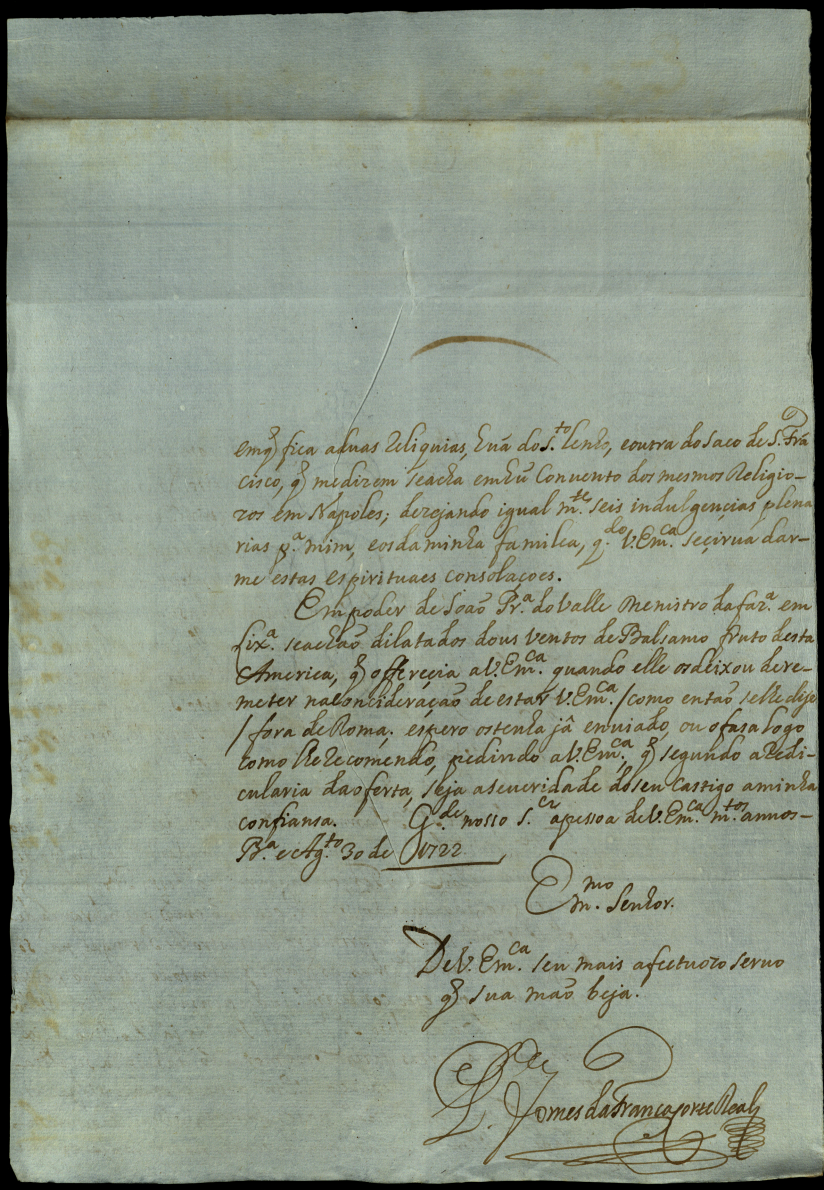 em q̃ fica a duas Reliquias, huã do S.to lenho, e outra do Saco de S. Frã
cisco, q̃ me dizem se acha em hu Convento dos mesmos Religio-
zos em Napoles; dezejando igual m.te seis indulgencias plena
rias p.a mim, e os da minha familea, q.do V. Em.ca se cirua dar-
me estas espirituaes consolaçoes.
Em poder de Joaõ Pr.a do Valle Menistro da faz.a em
Lix.a se achaõ dilatados dous ventos de Balsamo fruto desta
America, q̃ offerecia a V. Em.ca quando elle os deixou de re-
meter na Concideraçaõ de estar V. Em.ca / como entaõ se lhe dise
/ fora de Roma; espero os tenha já enuiado, ou o fasa logo
como lhe Recomendo, pedindo a V. Em.ca q̃ segundo a Redi-
cularia da oferta, seja a seueridade do seu Castigo a minha
confiansa. G.de nosso S.r a pessoa de V. Em.ca m.tos annos-
B.a e Ag.to 30 de 1722
Em.mo Senhor.
De V. Em.ca seu mais afectuozo seruo
q̃ sua maõ beja.
Gomes da Franca Corte Real